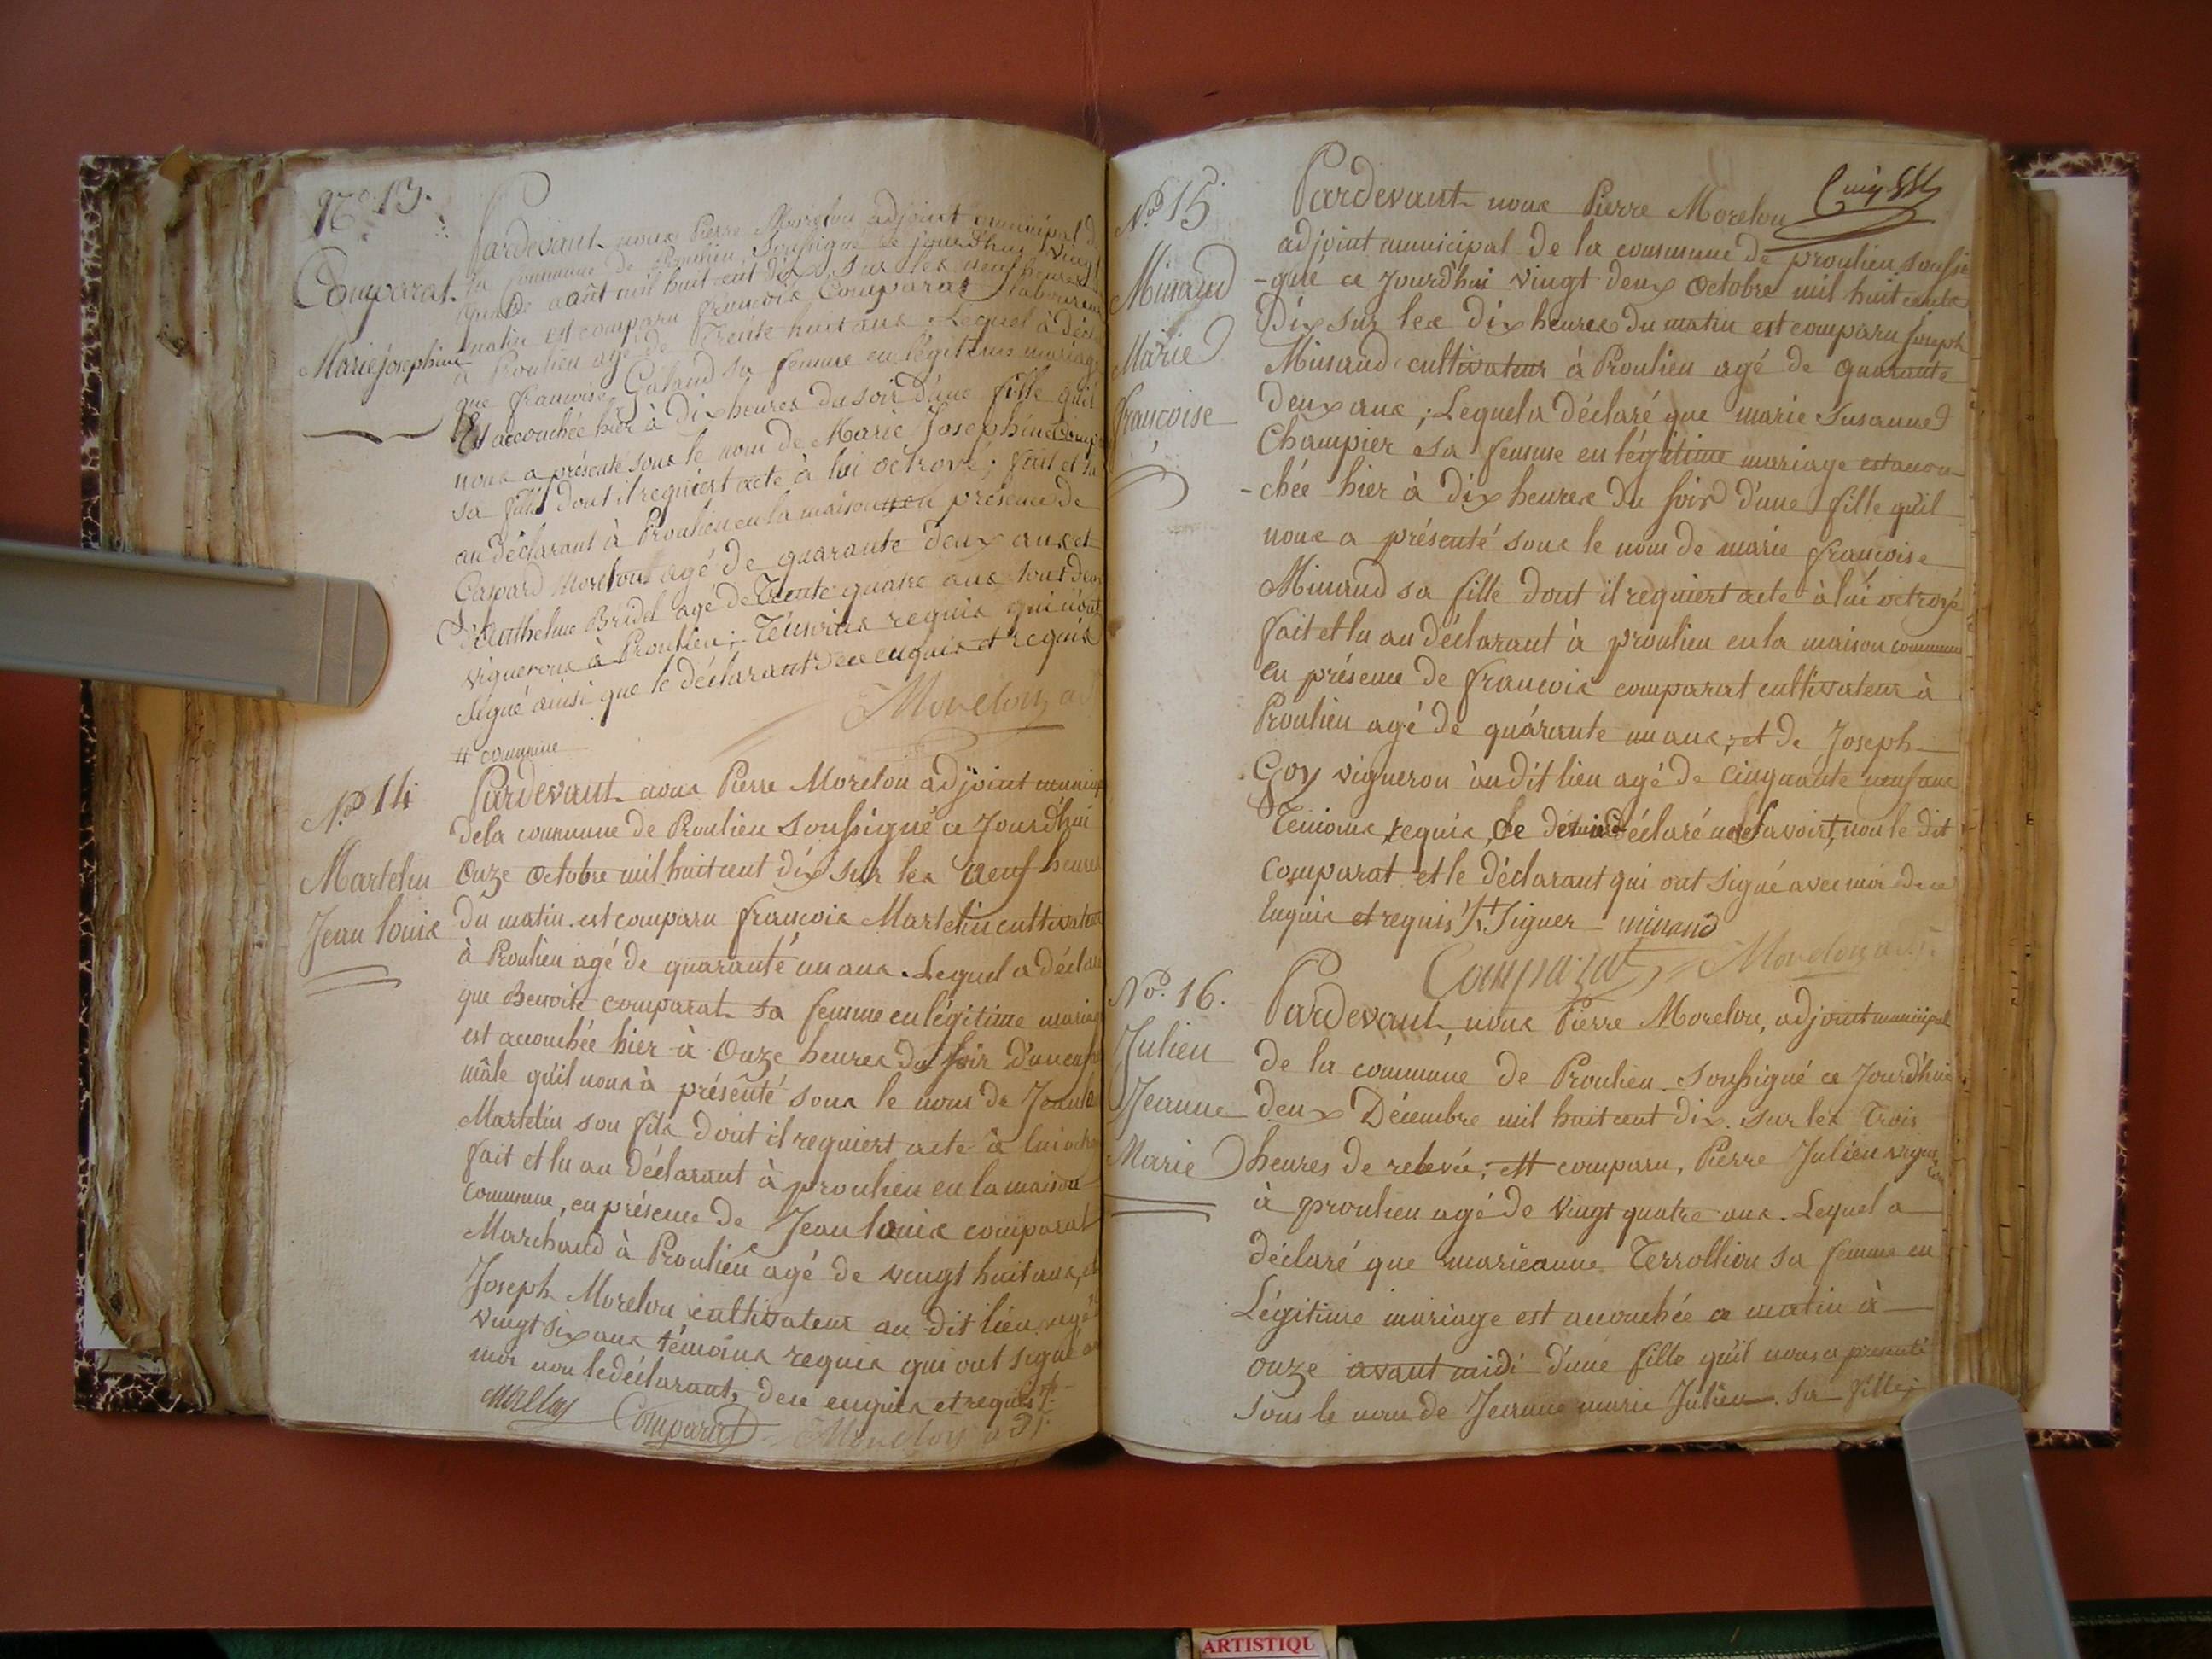 N.o 13.
Comparat
Marie josephine
Pardevant nous Pierre Morelon adjoint municipal de
la commune de Proulieu soussigné ce jourd'hui vingt
quatre aoât mil huit cent dix sur les neuf heures
matin est comparu françois Comparat laboureur
à Proulieu agé de Trente huit ans Lequel à décl
que francoise Galand sa femme en légitime mariage
Est accouchée hier à Dix heures du soir d'une fille qu'il
nous a présenté sous le nom de Marie Josephine
sa fille dont il requiert acte à lui octroyé; fait et lu
au déclarant à Proulieu en la maison # en présence de
Gaspard Morelon agé de quarante deux ans et
d'Anthelme Bridel agé de Trente quatre ans tout deux
vignerons à Proulieu; Témoins requis qui n'ont
signé ainsi que le déclarant de ce enquis et requis
# commune
Morelon a
N.o 14
Martelin
Jean louis
Pardevant nous Pierre Morelon adjoint municip
de la commune de Proulieu soussigné ce Jourd'hui
Onze octobre mil huit cent dix sur les neuf heures
du matin est comparu francois Martelin cultivateur
à Proulieu agé de quarante un ans. Lequel a déclaré
que Benoite comparat sa femme en légitime mariage
est accouchée hier à Onze heures du soir d'un enf
mâle qu'il nous à présenté sous le nom de Jean lo
Martelin son fils dont il requiert acte à lui octr
fait et lu au déclarant à proulieu en la maison
commune, en présence de Jean louis comparat
Marchand à Proulieu agé de vingt huit ans, et
Joseph Morelon cultivateur au dit lieu agé d
vingt six ans témoins requis qui ont signé av
moi non le déclarant, de ce enquis et requis #
morellon Comparat Morelon adj.
N.o 15
Minand
Marie
francoise
Pardevant nous Pierre Morelon
adjoint municipal de la commune de proulieu soussi
-gné ce Jourd'hui vingt deux octobre mil huit cents
Dix sur les dix heures du matin est comparu Joseph
Minand cultivateur à Proulieu agé de quarante
deux ans; Lequel a déclaré que marie Susanne
Champier sa femme en légitime mariage est acou-
-chée hier à dix heures du soir d'une fille qu'il
nous a présenté sous le nom de marie francoise
Minand sa fille dont il requiert acte à lui octroyé
fait et lu au déclarant à proulieu en la maison commune
en présence de francois comparat cultivateur à
Proulieu agé de quarante un ans; et de Joseph
Goy vigneron au dit lieu agé de cinquante neuf ans
Témoins requis, Le dernier déclaré ne savoir +, non le dit
comparat et le déclarant qui ont signé avec moi de ce
Enquis et requis /. + Signer minand
Comparat Morelon adj.
N.o 16.
Julien
Jeanne
Marie
Pardevant, nous Pierre Morelon, adjoint municipal
de la commune de Proulieu. soussigné ce Jourd'hui
deux Décembre mil huit cent dix. sur les Trois
heures de relevée; est comparu, Pierre Julien vigneron
à proulieu agé de vingt quatre ans. Lequel a
déclaré que marieanne Terrollion sa femme en
Légitime mariage est acouchée ce matin à
onze avant midi d'une fille qu'il nous a presenté
sous le nom de Jeanne marie Julien. sa fille;
ARTISTIQU